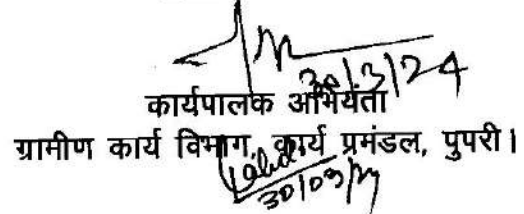 30/3/24
कार्यपालक अभियंता
ग्रामीण कार्य विभाग, कार्य प्रमंडल, पुपरी।
30/03/24